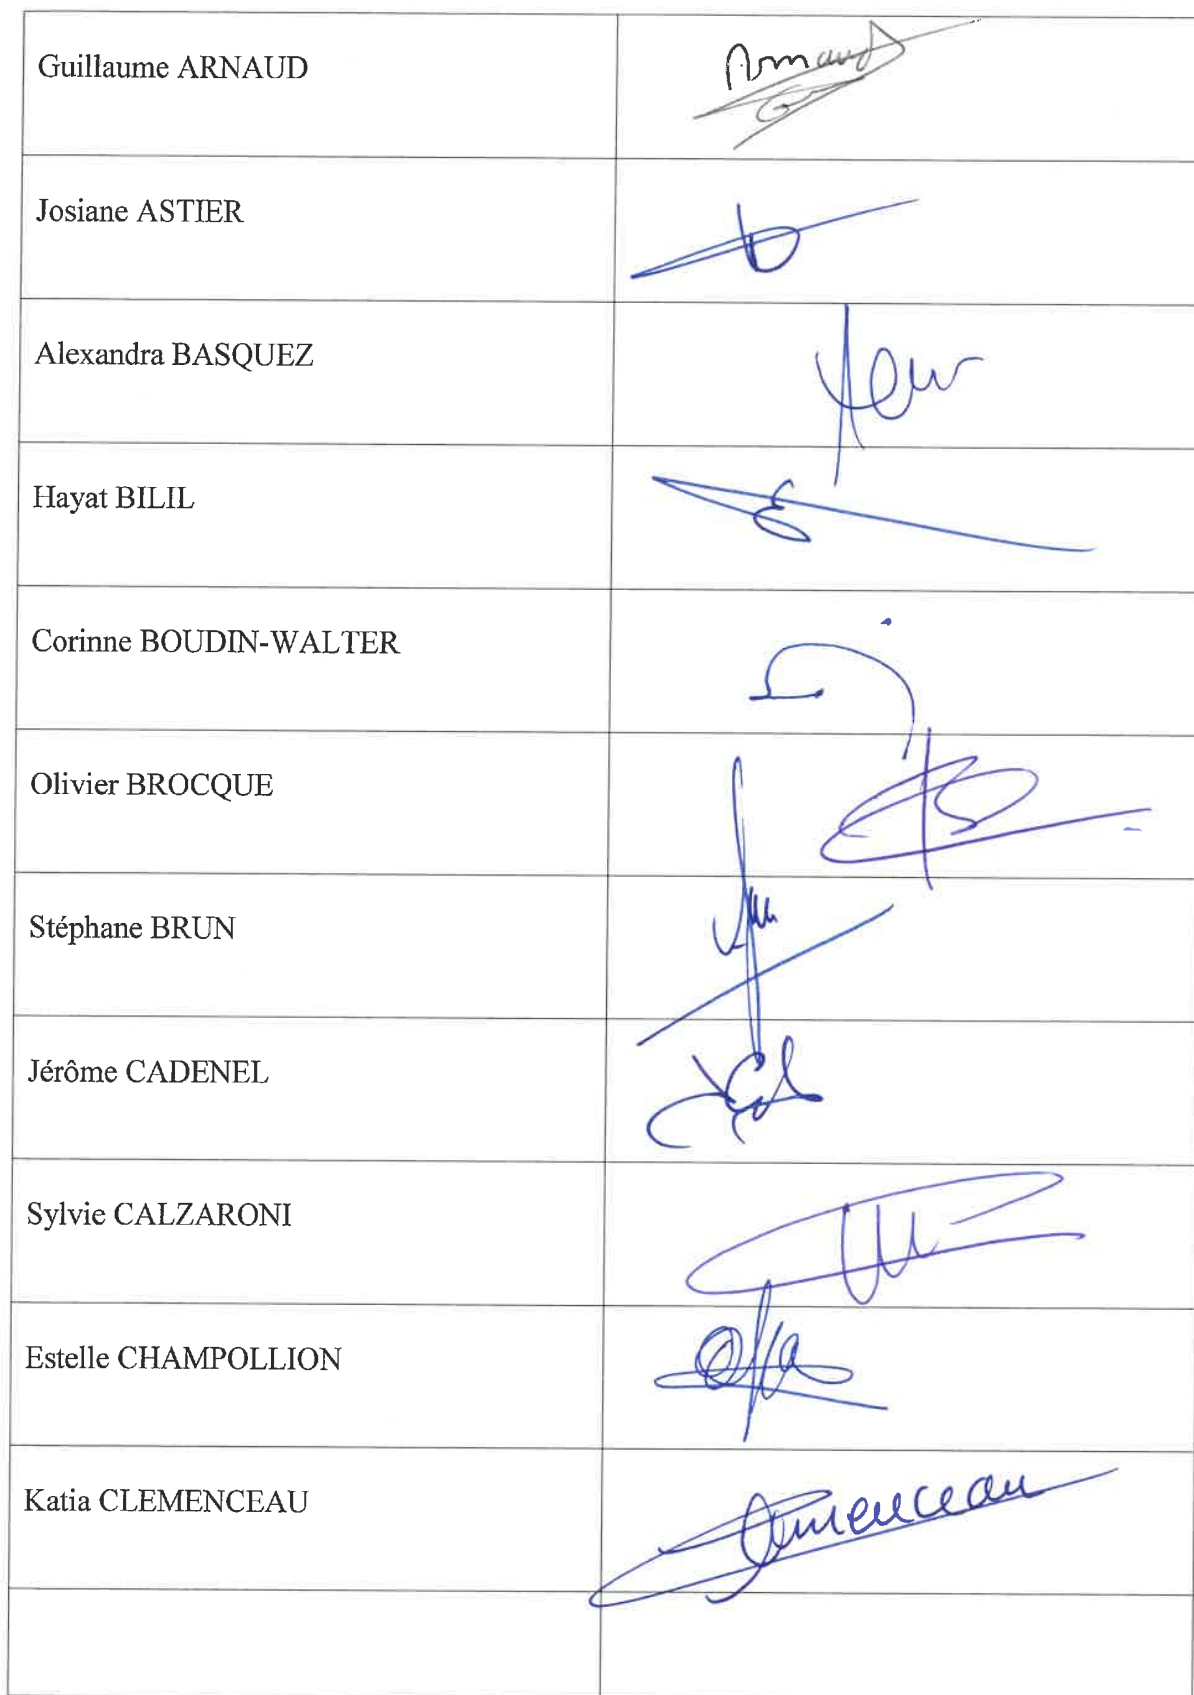 Guillaume ARNAUD
Arnaud
Josiane ASTIER
Alexandra BASQUEZ
Hayat BILIL
Corinne BOUDIN-WALTER
Olivier BROCQUE
Stéphane BRUN
Jérôme CADENEL
Sylvie CALZARONI
Estelle CHAMPOLLION
Katia CLEMENCEAU
Clemenceau